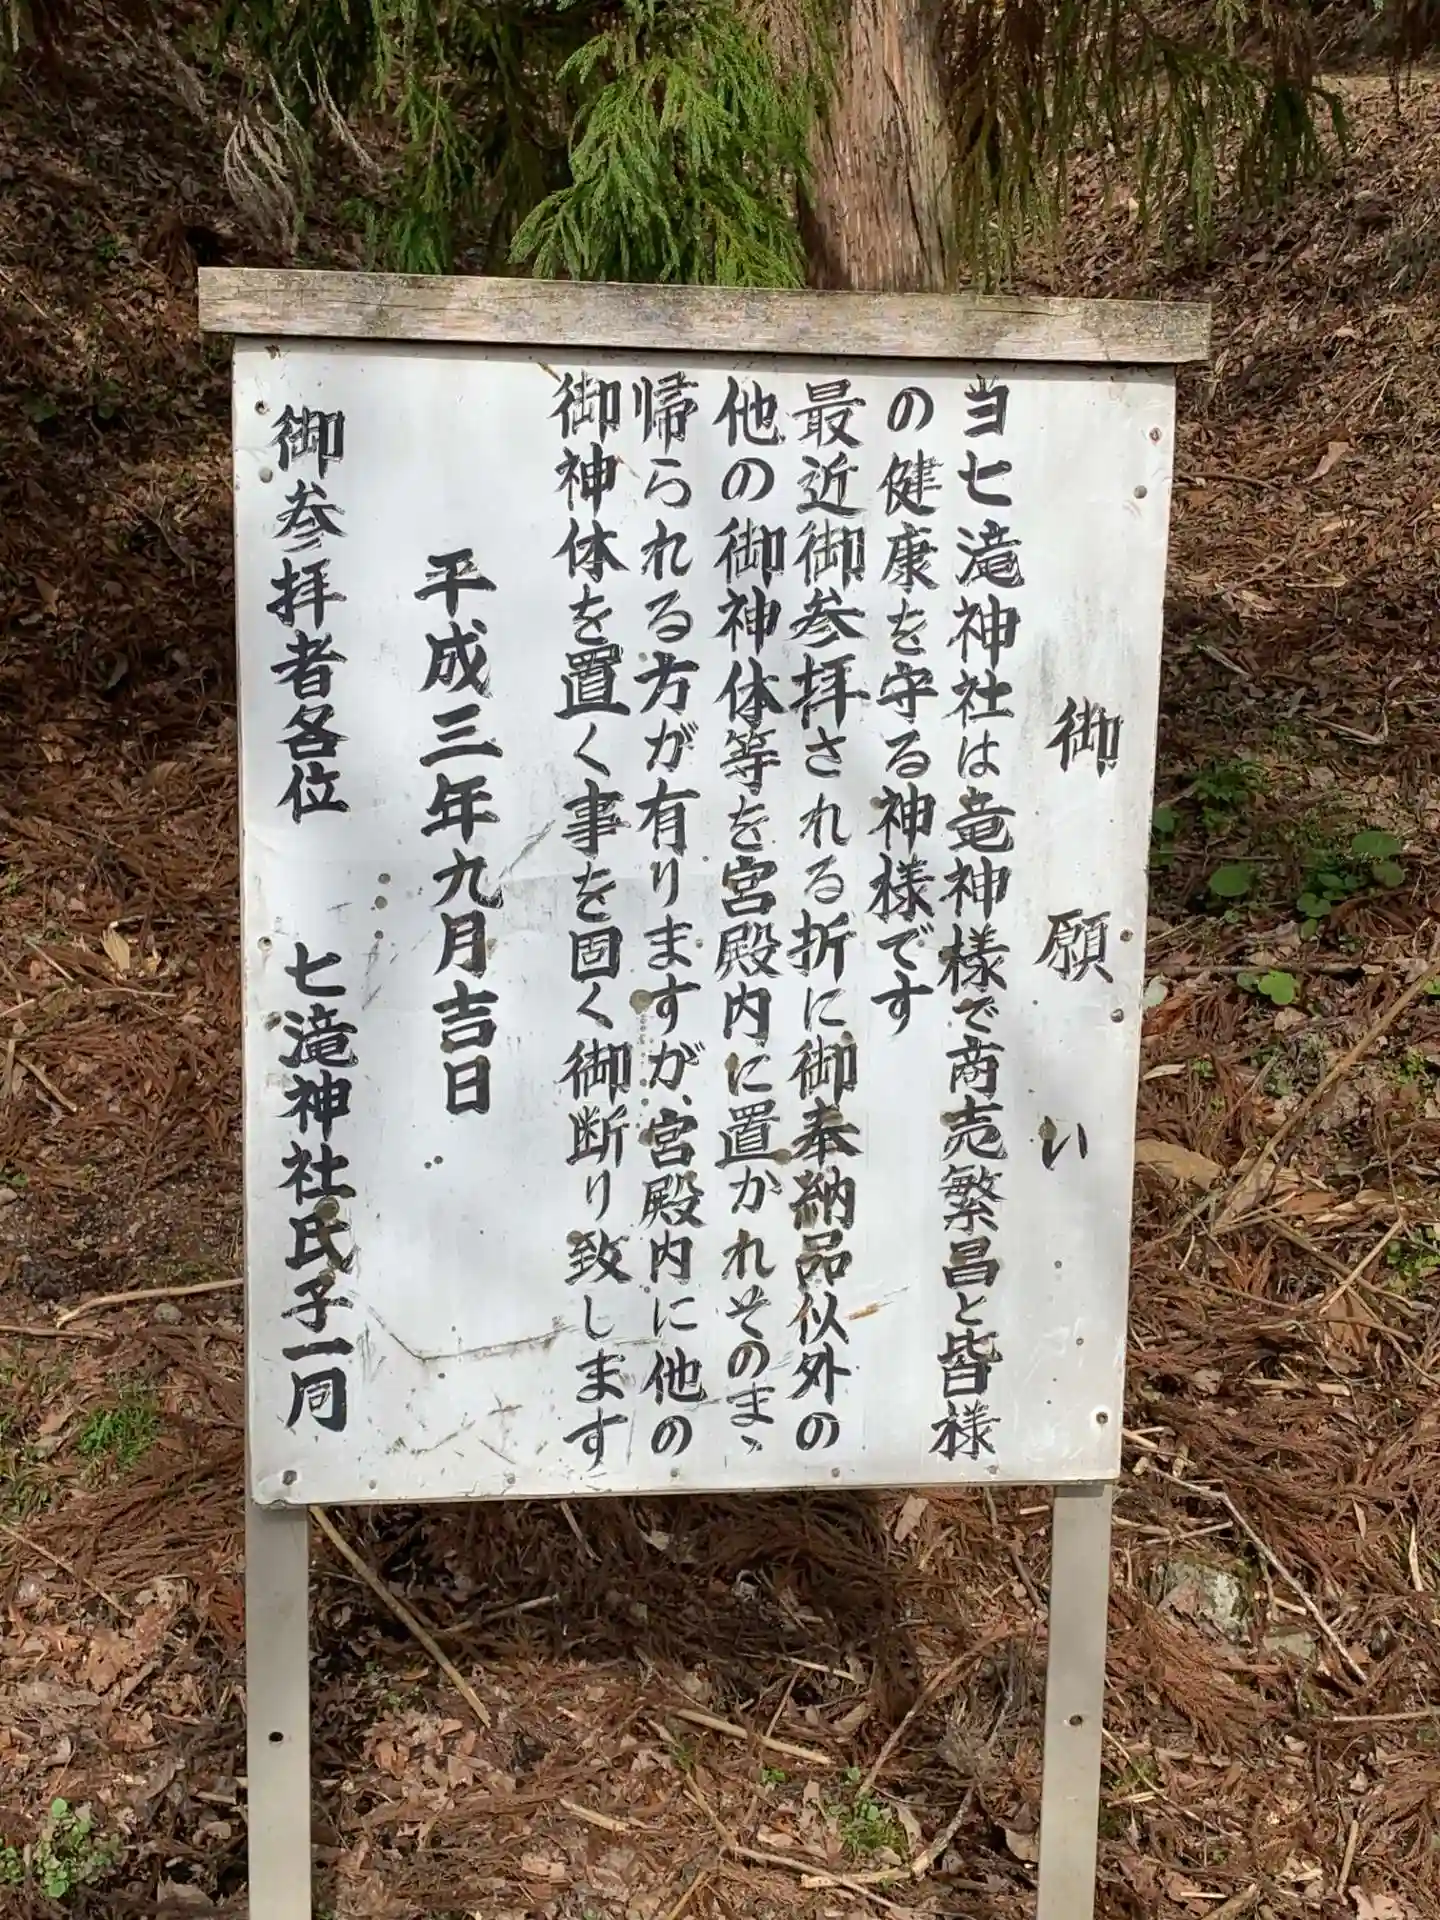 御願い
当七滝神社は竜神様で商売繁昌と皆様
の健康を守る神様です
最近御参拝される折に御奉納品以外の
他の御神体等を宮殿内に置かれそのまゝ
帰られる方が有りますが、宮殿内に他の
御神体を置く事を固く御断り致します
平成三年九月吉日
御参拝者各位　七滝神社氏子一同